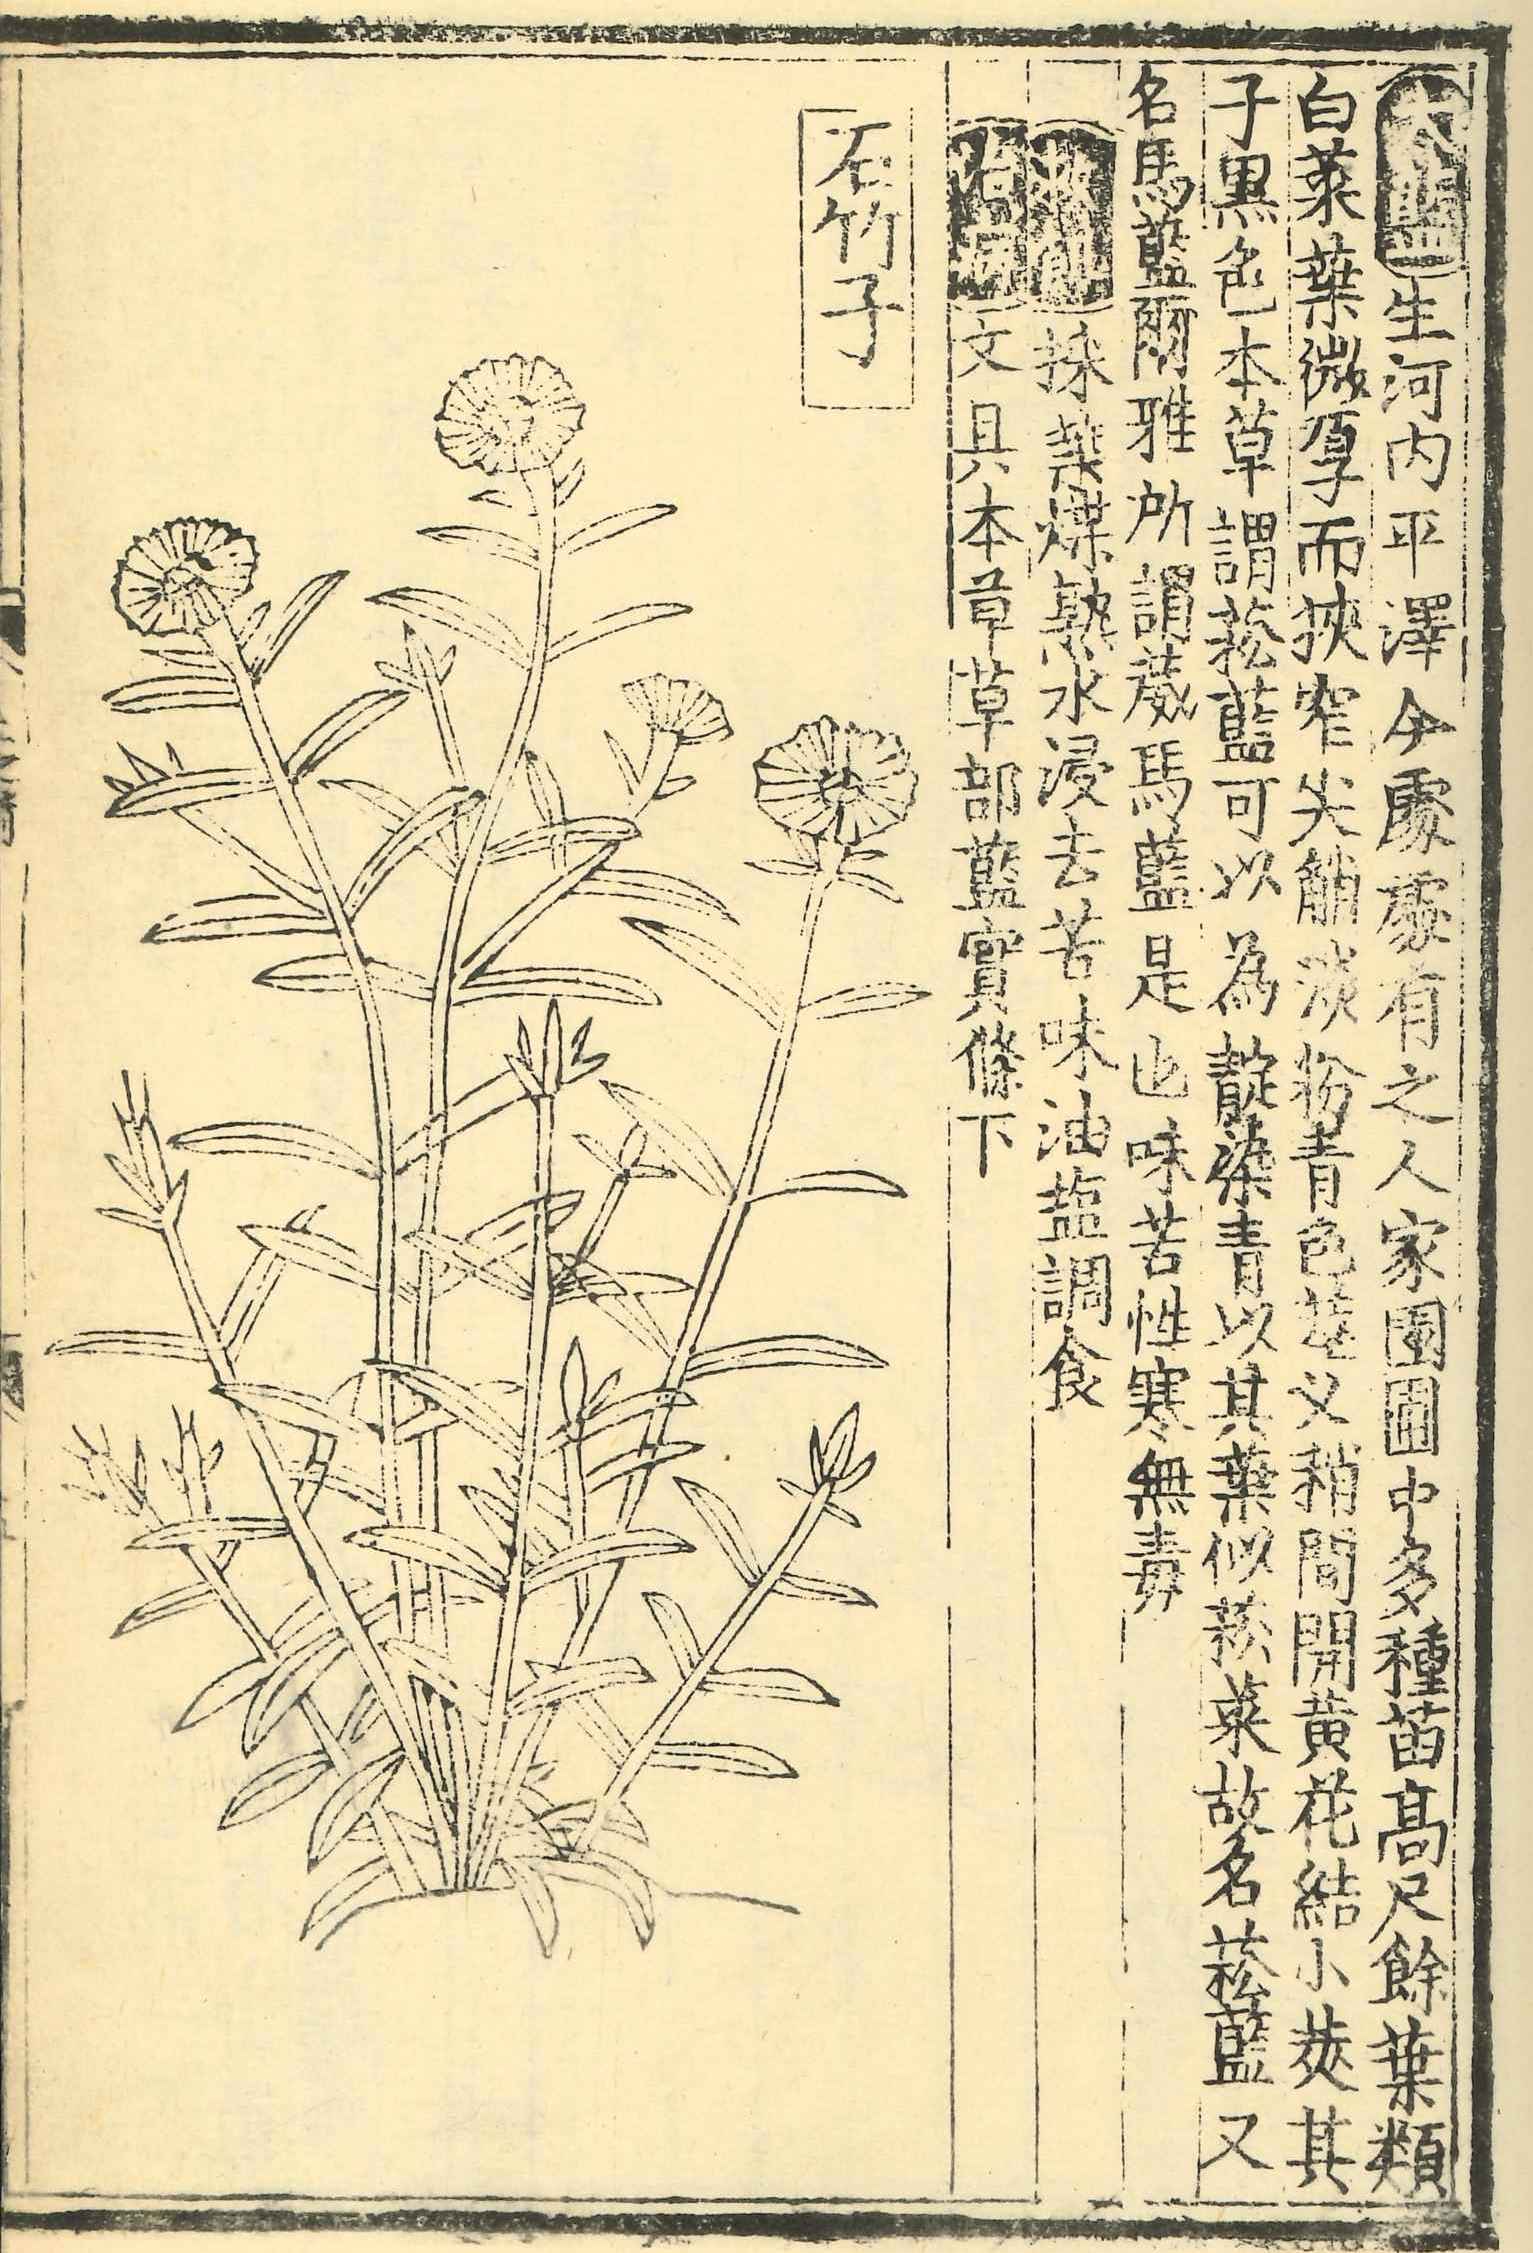 大藍生河内平澤今處處有之人家園圃中多種苗髙尺餘葉類
白菜葉微厚而狹窄尖䚔淡粉青色莖叉稍間開黄花結小莢其
子黒色本草謂菘藍可以為靛染青以其葉似菘菜故名菘藍又
名馬藍爾雅所謂葴馬藍是也味苦性寒無毒
救飢採葉煠熟水浸去苦味油塩調食
治病文具本草草部藍實條下
石竹子